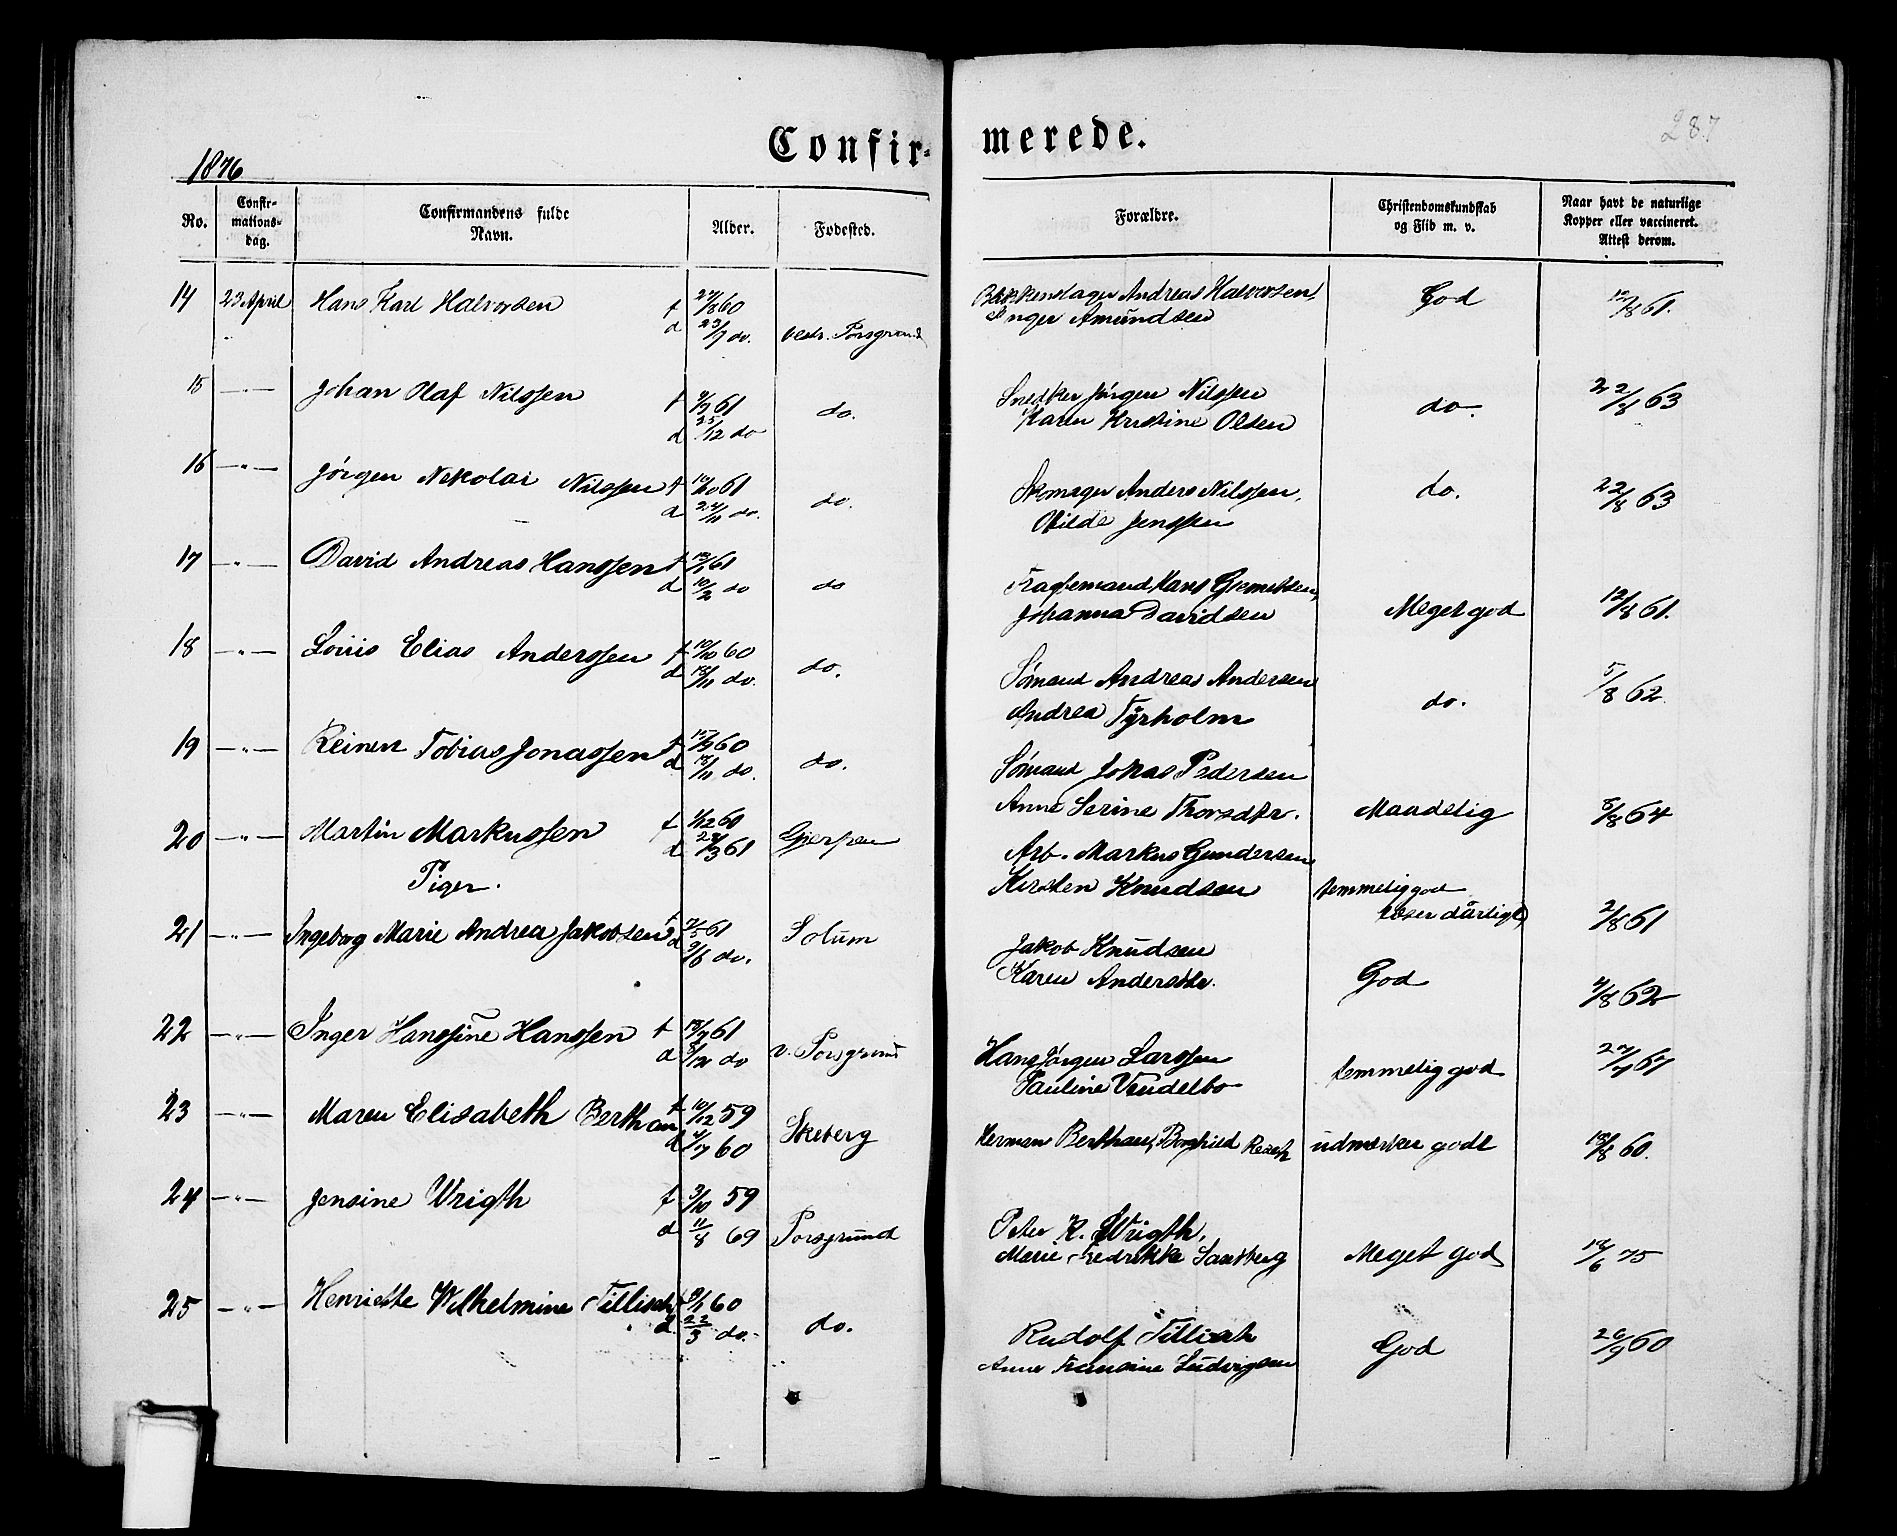 Confir-merede.
287
1876
No. Confir-mations-dag. Confirmandens fulde Navn. Alder. Fødested. Forældre. Christendomskundskab og Flid m. v. Naar havt de naturlige Kopper eller vaccineret. Attest derom.
14 23 April Hans Karl Halvorsen f 27/8 60 Andreas Halvorsen, God 12/8 61.
d do. vestr. Porsgrund Inger Amundsen
15 —"— Johan Olaf Nilssen f 61 do. Snedker Jørgen Nilssen do. 22/8 63
d 25/12 do Karen Kristine Olsen
16 —"— Jørgen Nikolai Nilssen f 61 do. Skomager Anders Nilssen, do. 22/8 63
d 24/11 do. Jenssen
17 —"— David Andreas Hanssen f 61 do Hans
d 10/2 do Johanna Davidsen Meget god 12/8 61.
18 —"— Louis Elias Anderssen f 10/10 60 do. Sømand Andreas Andersen 5/8 62
d do. Andrea Tyrholm do.
19 —"— Reinert Tobias Jonassen f 60 do. Sømand Jonas Pedersen
d do. Anne Serine Thorsdtr. Maadelig 8/8 64
20 —"— Martin Markussen f 1/12 60 Gjerpen Arb. Markus Gundersen
d 3 61 Kirsten Knudsen temmelig god
Piger. læser dårligt 2/8 61
21 —"— Ingeborg Marie Andrea Jakobsen f 61 Solum Jakob Knudsen
d 9/6 do. Karen Andersdtr. God 62
22 —"— Inger Hanssine Hanssen f 61 v. Porsgrund Hans Jørgen Larssen
d 8/12 do Pauline Vendelbo temmelig god
23 —"— Maren Elisabeth Berthau f 10/12 59 Skeberg Herman Berthau, Borghild udmerket godt 18/8 60.
d 60
24 —"— Jensine Wrigth f 3/10 59 Peter R. Wrigth,
d 11/8 69 Porsgrund Marie Fredrikke Sandberg Meget god 75
25 —"— Henriette Wilhelmine Tillisch f 9/1 60 Rudolf Tillisch
d. 22/3 do. do. Anne Fransine Ludvigsen God 26/9 60